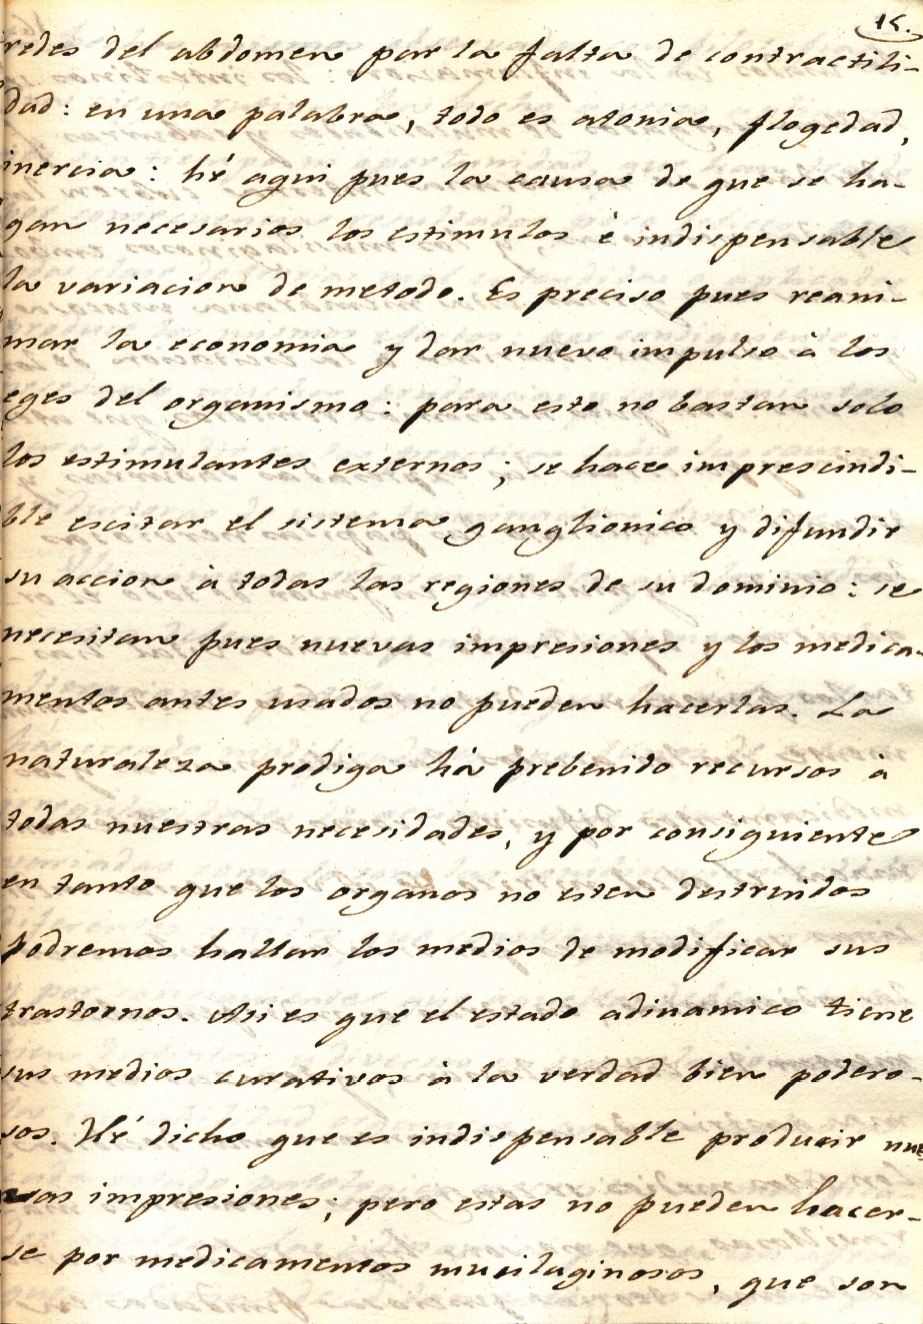 15.
redes del abdomen por la falta de contractili-
dad: en una palabra, todo es atonia, flogedad,
inercia: hé aqui pues la causa de que se ha-
gan necesarios los estimulos è indispensable
la variacion de metodo. Es preciso pues reani-
mar la economia y dar nuevo impulso à los
eges del organismo: para esto no bastan solo
los estimulantes externos; se hace imprescindi-
ble escitar el sistema ganglionico y difundir
su accion à todas las regiones de su dominio: se
necesitan pues nuevas impresiones y los medica-
mentos antes usados no pueden hacerlas. La
naturaleza prodiga há prebenido recursos à
todas nuestras necesidades, y por consiguiente
en tanto que los organos no esten destruidos
podremos hallar los medios de modificar sus
trastornos. Asi es que el estado adinamico tiene
sus medios curativos à la verdad bien podero-
sos. Hé dicho que es indispensable producir nue
vas impresiones; pero estas no pueden hacer-
se por medicamentos mucilaginosos, que son